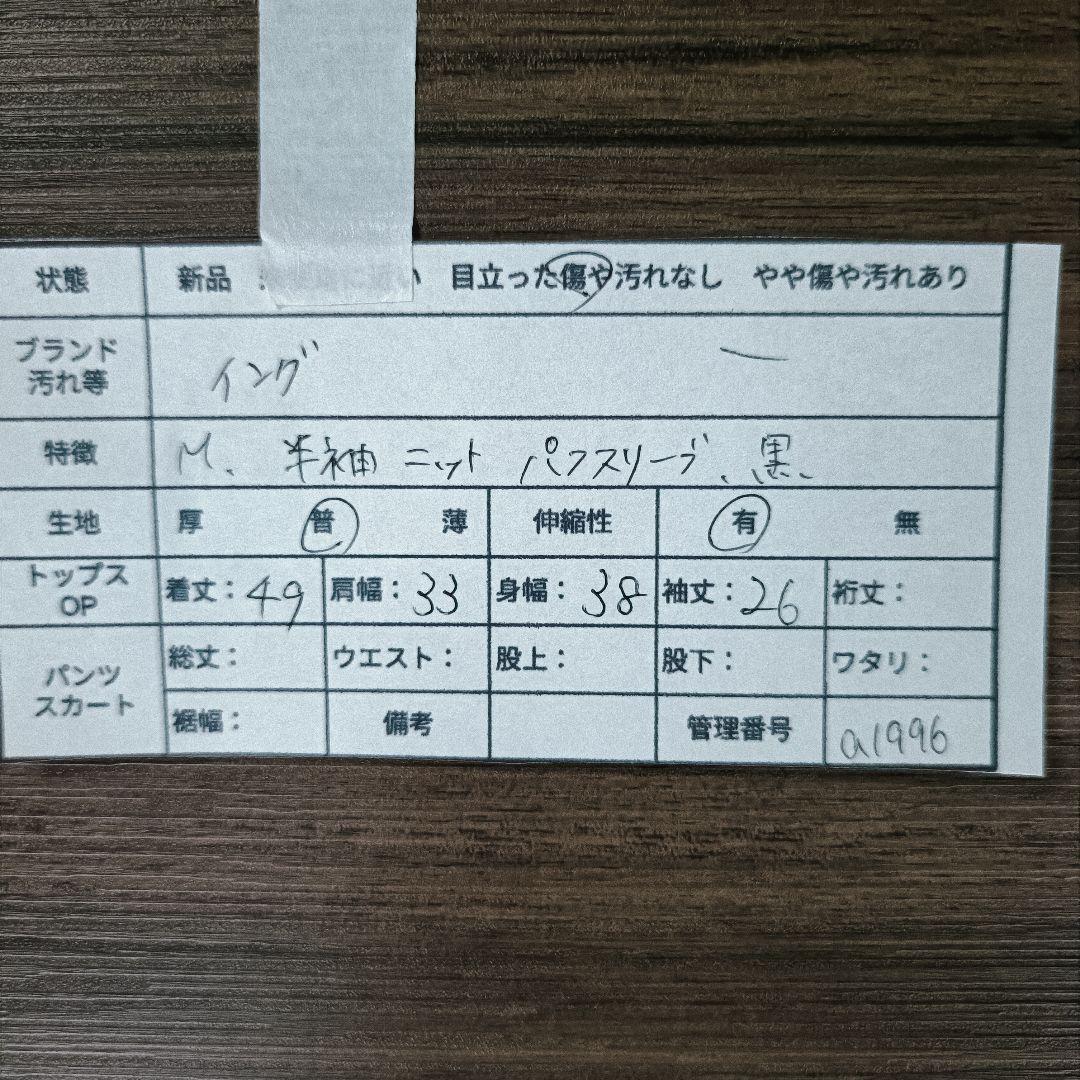 状態 新品 い 目立った傷や汚れなし やや傷や汚れあり
ブランド
汚れ等 イング ー
特徴 M、半袖ニット パフスリーブ、黒、
生地 厚 普 薄 伸縮性 有 無
トップス
OP 着丈:49 肩幅:33 身幅:38 袖丈:26 裄丈:
パンツ
スカート 総丈: ウエスト: 股上: 股下: ワタリ:
裾幅: 備考 管理番号 a1996